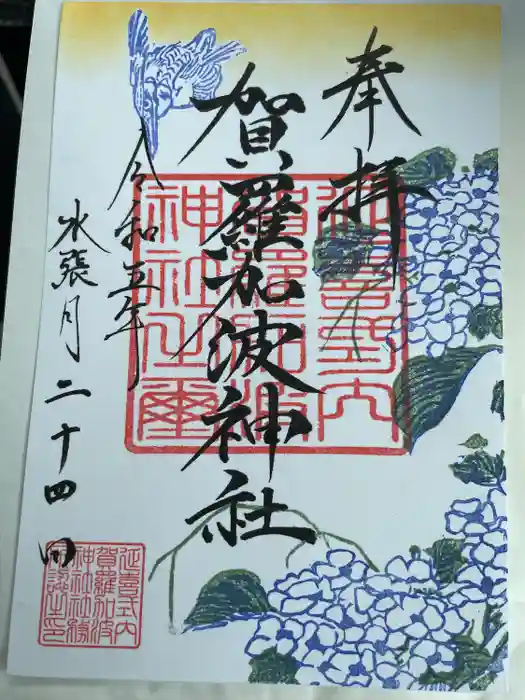 奉拝
賀羅加波神社
令和五年
水張月二十四日
延喜式内
賀羅加波
神社之璽
延喜式内
賀羅加波
神社社務